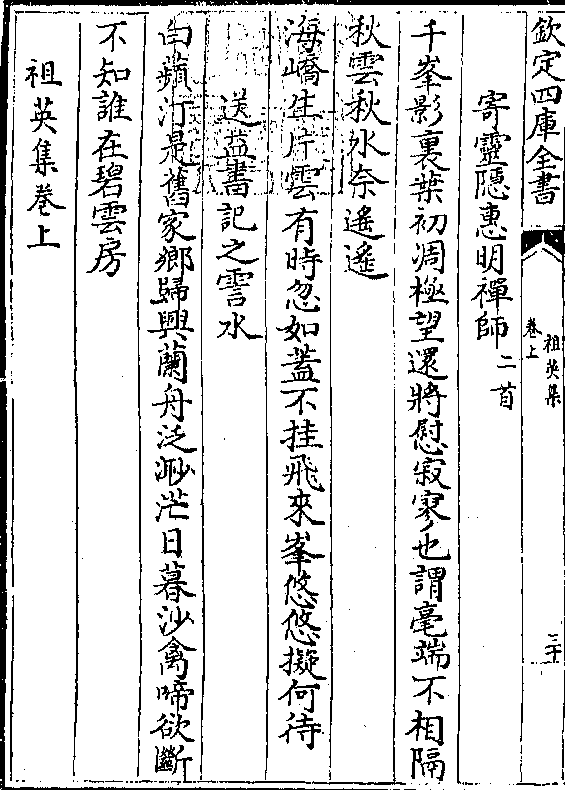 欽定四庫全書
祖英集
卷上
三十
寄靈隱惠明禪師二首
千峯影裏葉初凋極望還將慰寂寥也謂毫端不相隔
秋雲秋水奈遙遙
海嶠生片雲有時忽如蓋不挂飛來峯悠悠擬何待
送益書記之霅水
白蘋汀是舊家鄉歸興蘭舟泛渺茫日暮沙禽啼欲斷
不知誰在碧雲房
祖英集卷上